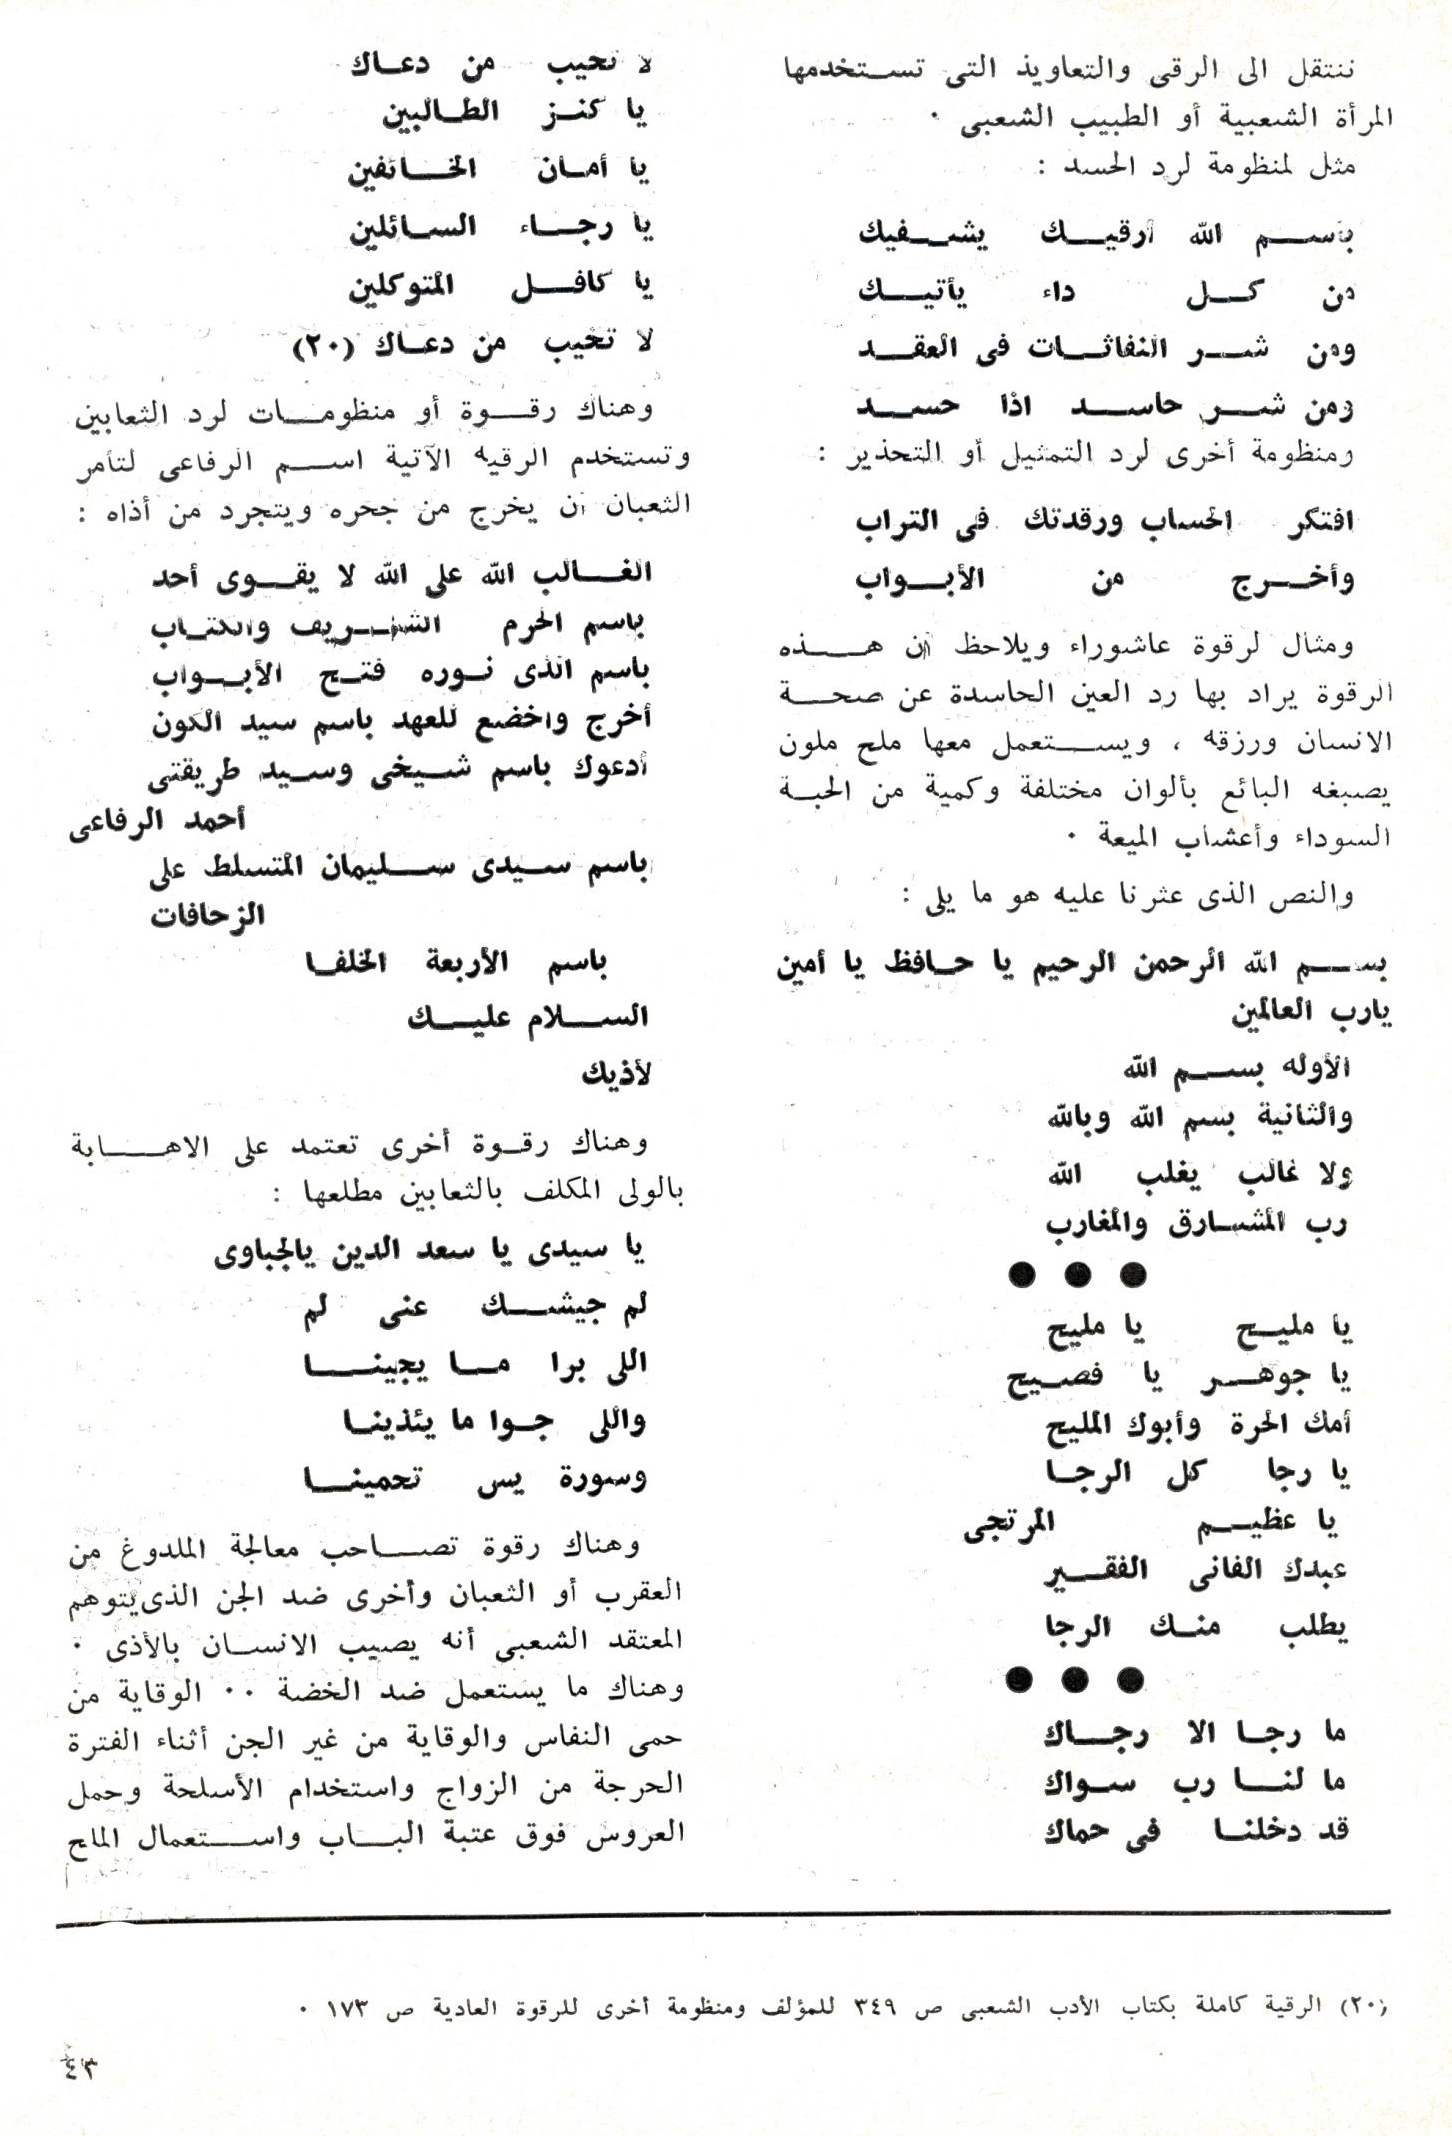 ننتقل الى الرقى والتعاويذ التى تستخدمها
المرأة الشعبية أو الطبيب الشعبى ٠
مثل لمنظومة لرد الحسد :
بأسم الله أرقيك يشفيك
من كل داء يأتيك
ومن شر النفاثات فى العقد
ومن شر حاسد اذا حسد
ومنظومة أخرى لرد التمثيل أو التحذير :
افتكر الحساب ورقدتك فى التراب
وأخرج من الأبواب
ومثال لرقوة عاشوراء ويلاحظ أن هذه
الرقوة يراد بها رد العين الحاسدة عن صحة
الانسان ورزقه ، ويستعمل معها ملح ملون
يصبغه البائع بألوان مختلفة وكمية من الحبة
السوداء وأعشاب الميعة ٠
والنص الذى عثرنا عليه هو ما يلى :
بسم الله الرحمن الرحيم يا حافظ يا أمين
يارب العالمين
الأوله بسم الله
والثانية بسم الله وبالله
ولا غالب يغلب الله
رب المشارق والمغارب
● ● ●
يا مليح يا مليح
يا جوهر يا فصيح
أمك الحرة وأبوك المليح
يا رجا كل الرجا
يا عظيم المرتجى
عبدك الفانى الفقير
يطلب منك الرجا
● ● ●
ما رجا الا رجاك
ما لنا رب سواك
قد دخلنا فى حماك
لا تخيب من دعاك
يا كنز الطالبين
يا أمان الخائفين
يا رجاء السائلين
يا كافل المتوكلين
لا تخيب من دعاك (٢٠)
وهناك رقوة أو منظومات لرد الثعابين
وتستخدم الرقيه الآتية اسم الرفاعى لتأمر
الثعبان أن يخرج من جحره ويتجرد من أذاه :
الغالب الله على الله لا يقوى أحد
باسم الحرم الشريف والكتاب
باسم الذى نوره فتح الأبواب
أخرج واخضع للعهد باسم سيد الكون
أدعوك باسم شيخى وسيد طريقتى
أحمد الرفاعى
باسم سيدى سليمان المتسلط على
الزحافات
باسم الأربعة الخلفا
السلام عليك
لأذيك
وهناك رقوة أخرى تعتمد على الاهابة
بالولى المكلف بالثعابين مطلعها :
يا سيدى يا سعد الدين يالجباوى
لم جيشك عنى لم
اللى برا ما يجينا
واللى جوا ما يئذينا
وسورة يس تحمينا
وهناك رقوة تصاحب معالجة الملدوغ من
العقرب أو الثعبان وأخرى ضد الجن الذى يتوهم
المعتقد الشعبى أنه يصيب الانسان بالأذى ٠
وهناك ما يستعمل ضد الخضة ٠٠ الوقاية من
حمى النفاس والوقاية من غير الجن أثناء الفترة
الحرجة من الزواج واستخدام الأسلحة وحمل
العروس فوق عتبة الباب واستعمال الملح
(٢٠) الرقية كاملة بكتاب الأدب الشعبى ص ٣٤٩ للمؤلف ومنظومة أخرى للرقوة العادية ص ١٧٣ ٠
٤٣